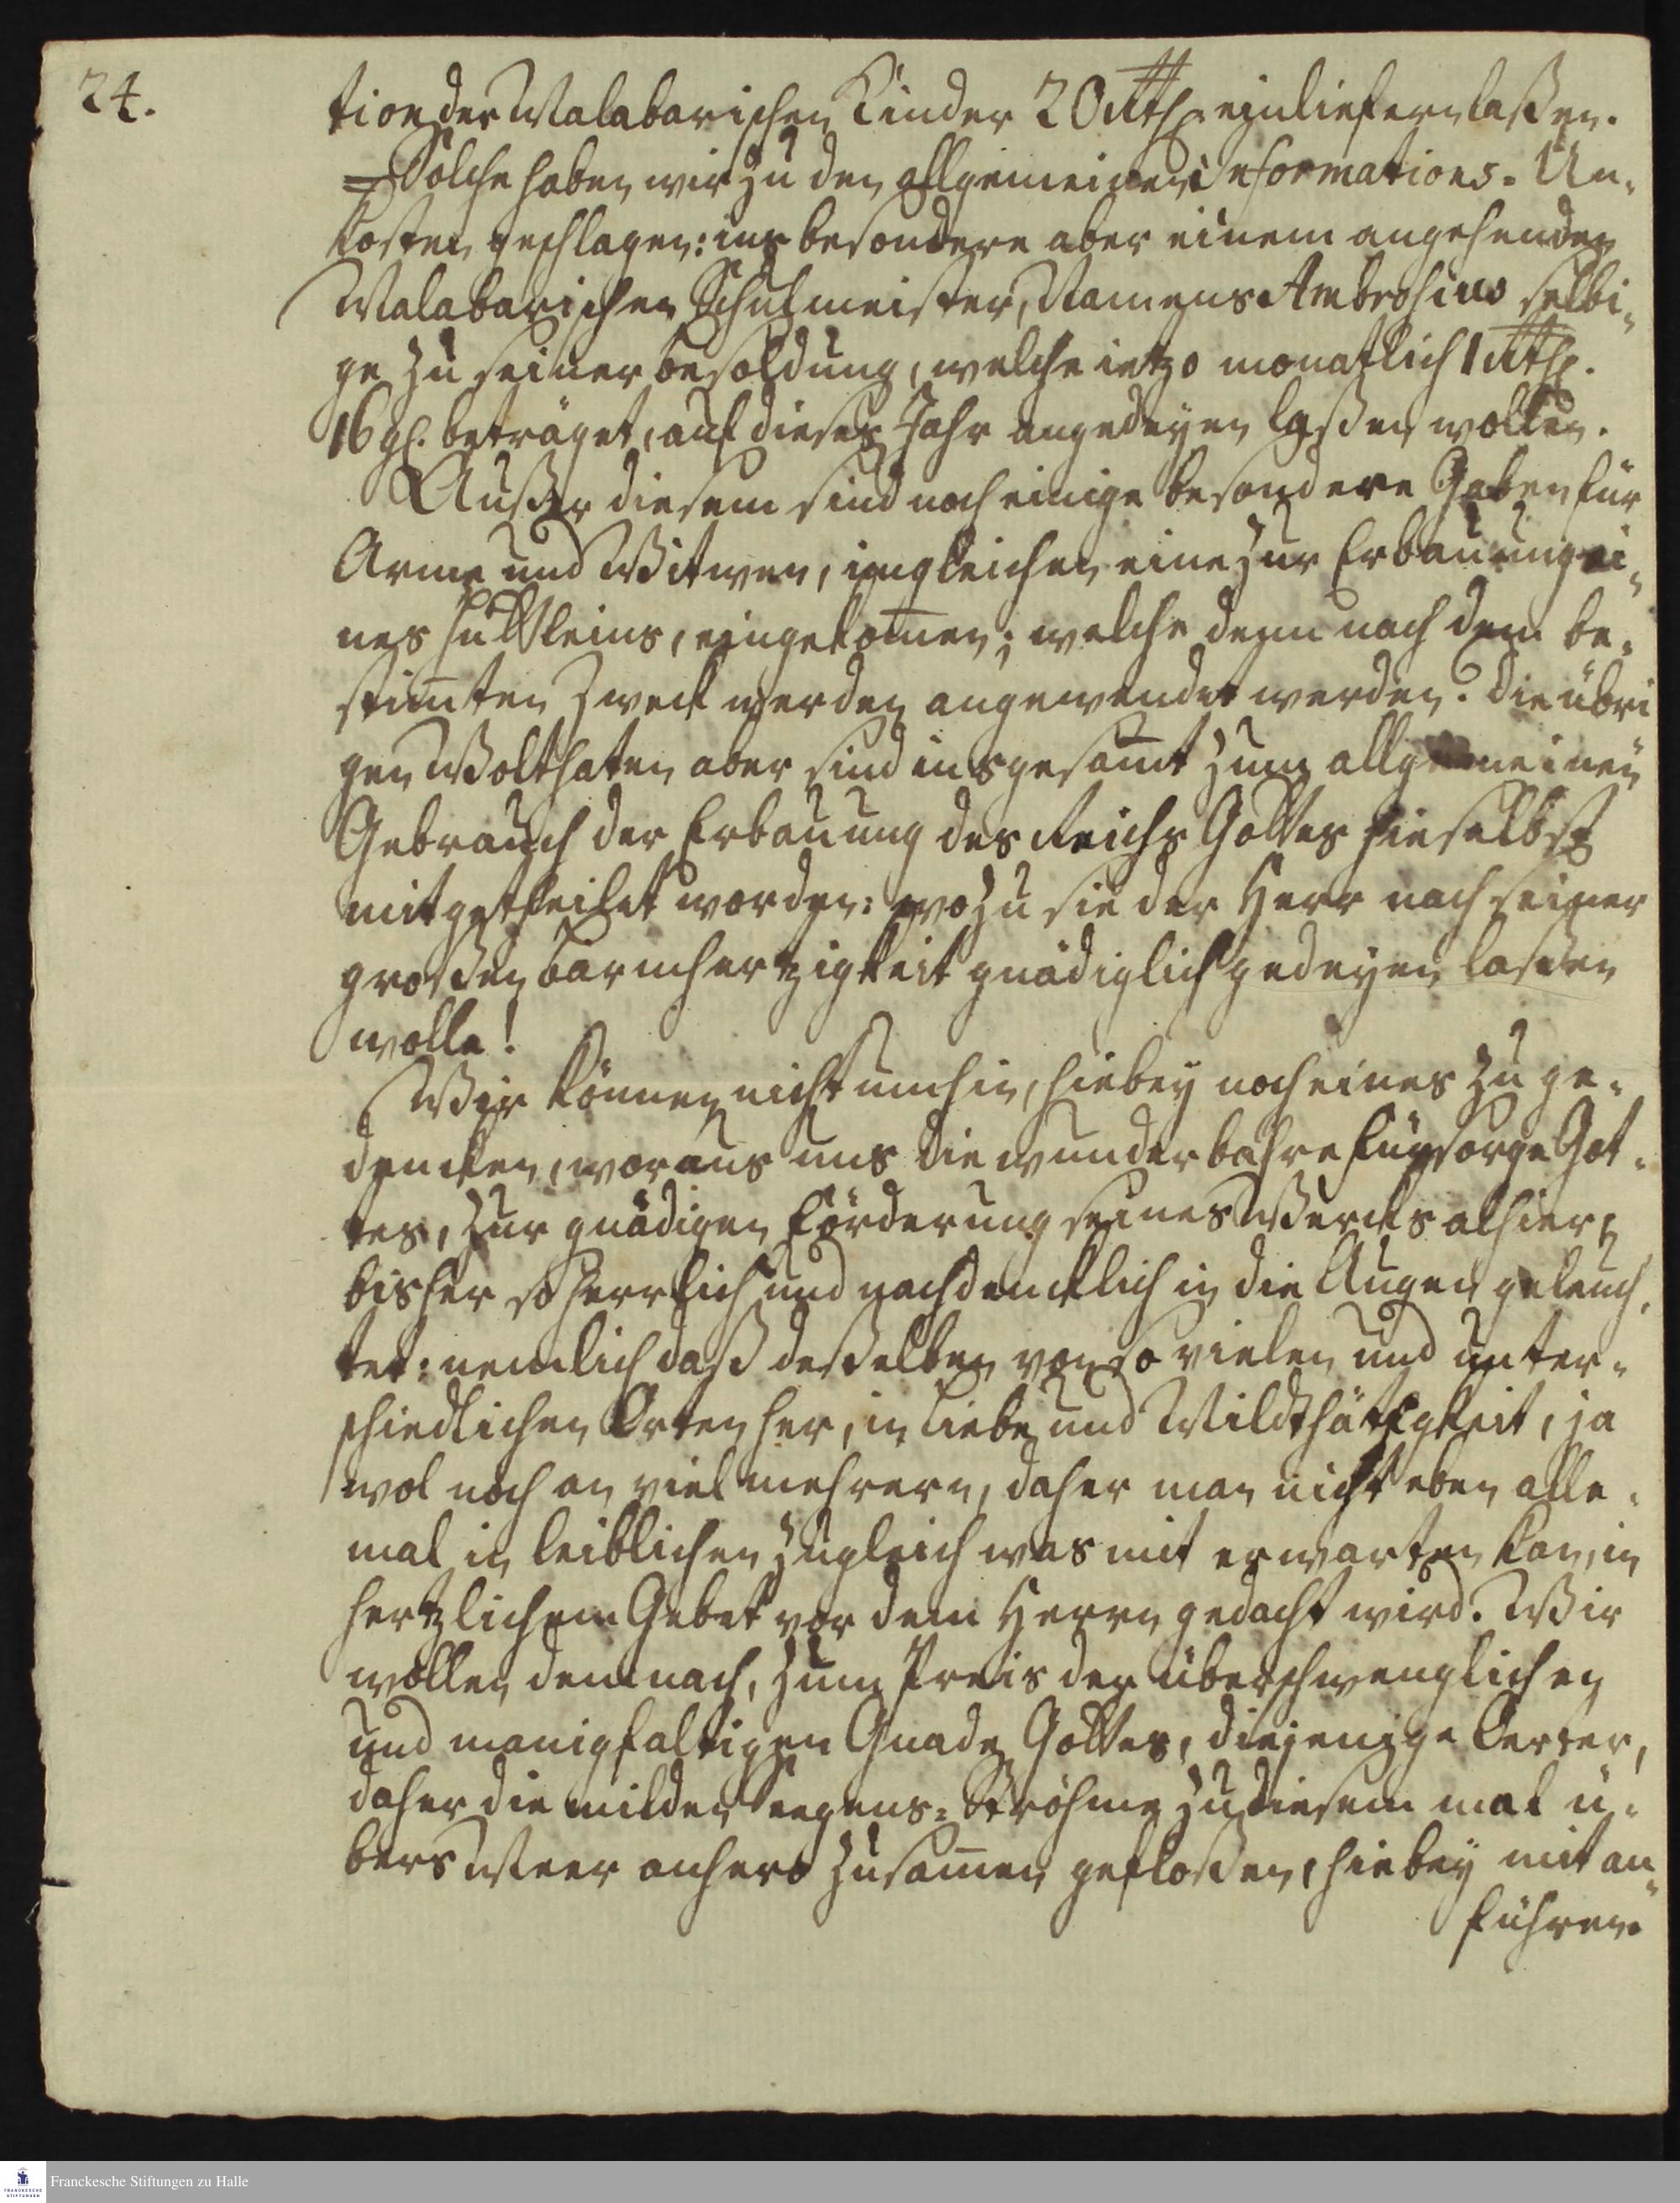 24.
tion der Malabarischen Kinder 20 Rthl. einliefern laßen.
Solche haben wir zu den allgemeinen Informations-Un-
kosten geschlagen: insbesondere aber einem angehenden
Malabarischen Schulmeister, Namens Ambrosius selbi-
ge zu seiner Besoldung, welche ietzo monatlich 1 Rthl.
16 gl. beträget, auf dieses Jahr angedeyen laßen wollen.
Außer diesem sind noch einige besondere Gaben für
Arme und Witwen, imgleichen eine zur Erbauung ei-
nes Hüttleins, eingekom̅en; welche denn nach dem be-
stim̅ten Zweck werden angewendet werden. Die übri
gen Wolthaten aber sind insgesam̅t zum allgemeinen
Gebrauch der Erbauung des Reichs Gottes hieselbst
mitgetheilet worden: wozu sie der Herr nach seiner
großen Barmhertzigkeit gnädiglich gedeyen laßen
wolle!
Wir können nicht umhin, hiebey noch eines zu ge-
dencken, woraus uns die wunderbahre Fürsorge Got-
tes, zur gnädigen Förderung seines Wercks alhier,
bisher so herrlich und nachdencklich in die Augen geleuch-
tet: nemlich daß deßelben von so vielen und unter-
schiedlichen Orten her, in Liebe und Mildthätigkeit, ja
wol noch an viel mehrern, daher man nicht eben alle-
mal in leiblichen zugleich was mit erwarten kan, in
hertzlichem Gebet vor dem Herrn gedacht wird. Wir
wollen demnach, zum Preis der überschwenglichen
und manigfaltigen Gnade Gottes, diejenige Oerter,
daher die milden Seegens-Ströhme zu diesem mal ü-
bers Meer anhero zusam̅en gefloßen, hiebey mit an-
führen.
Franckesche Stiftungen zu Halle
FRANCKESCHE
STIFTUNGEN